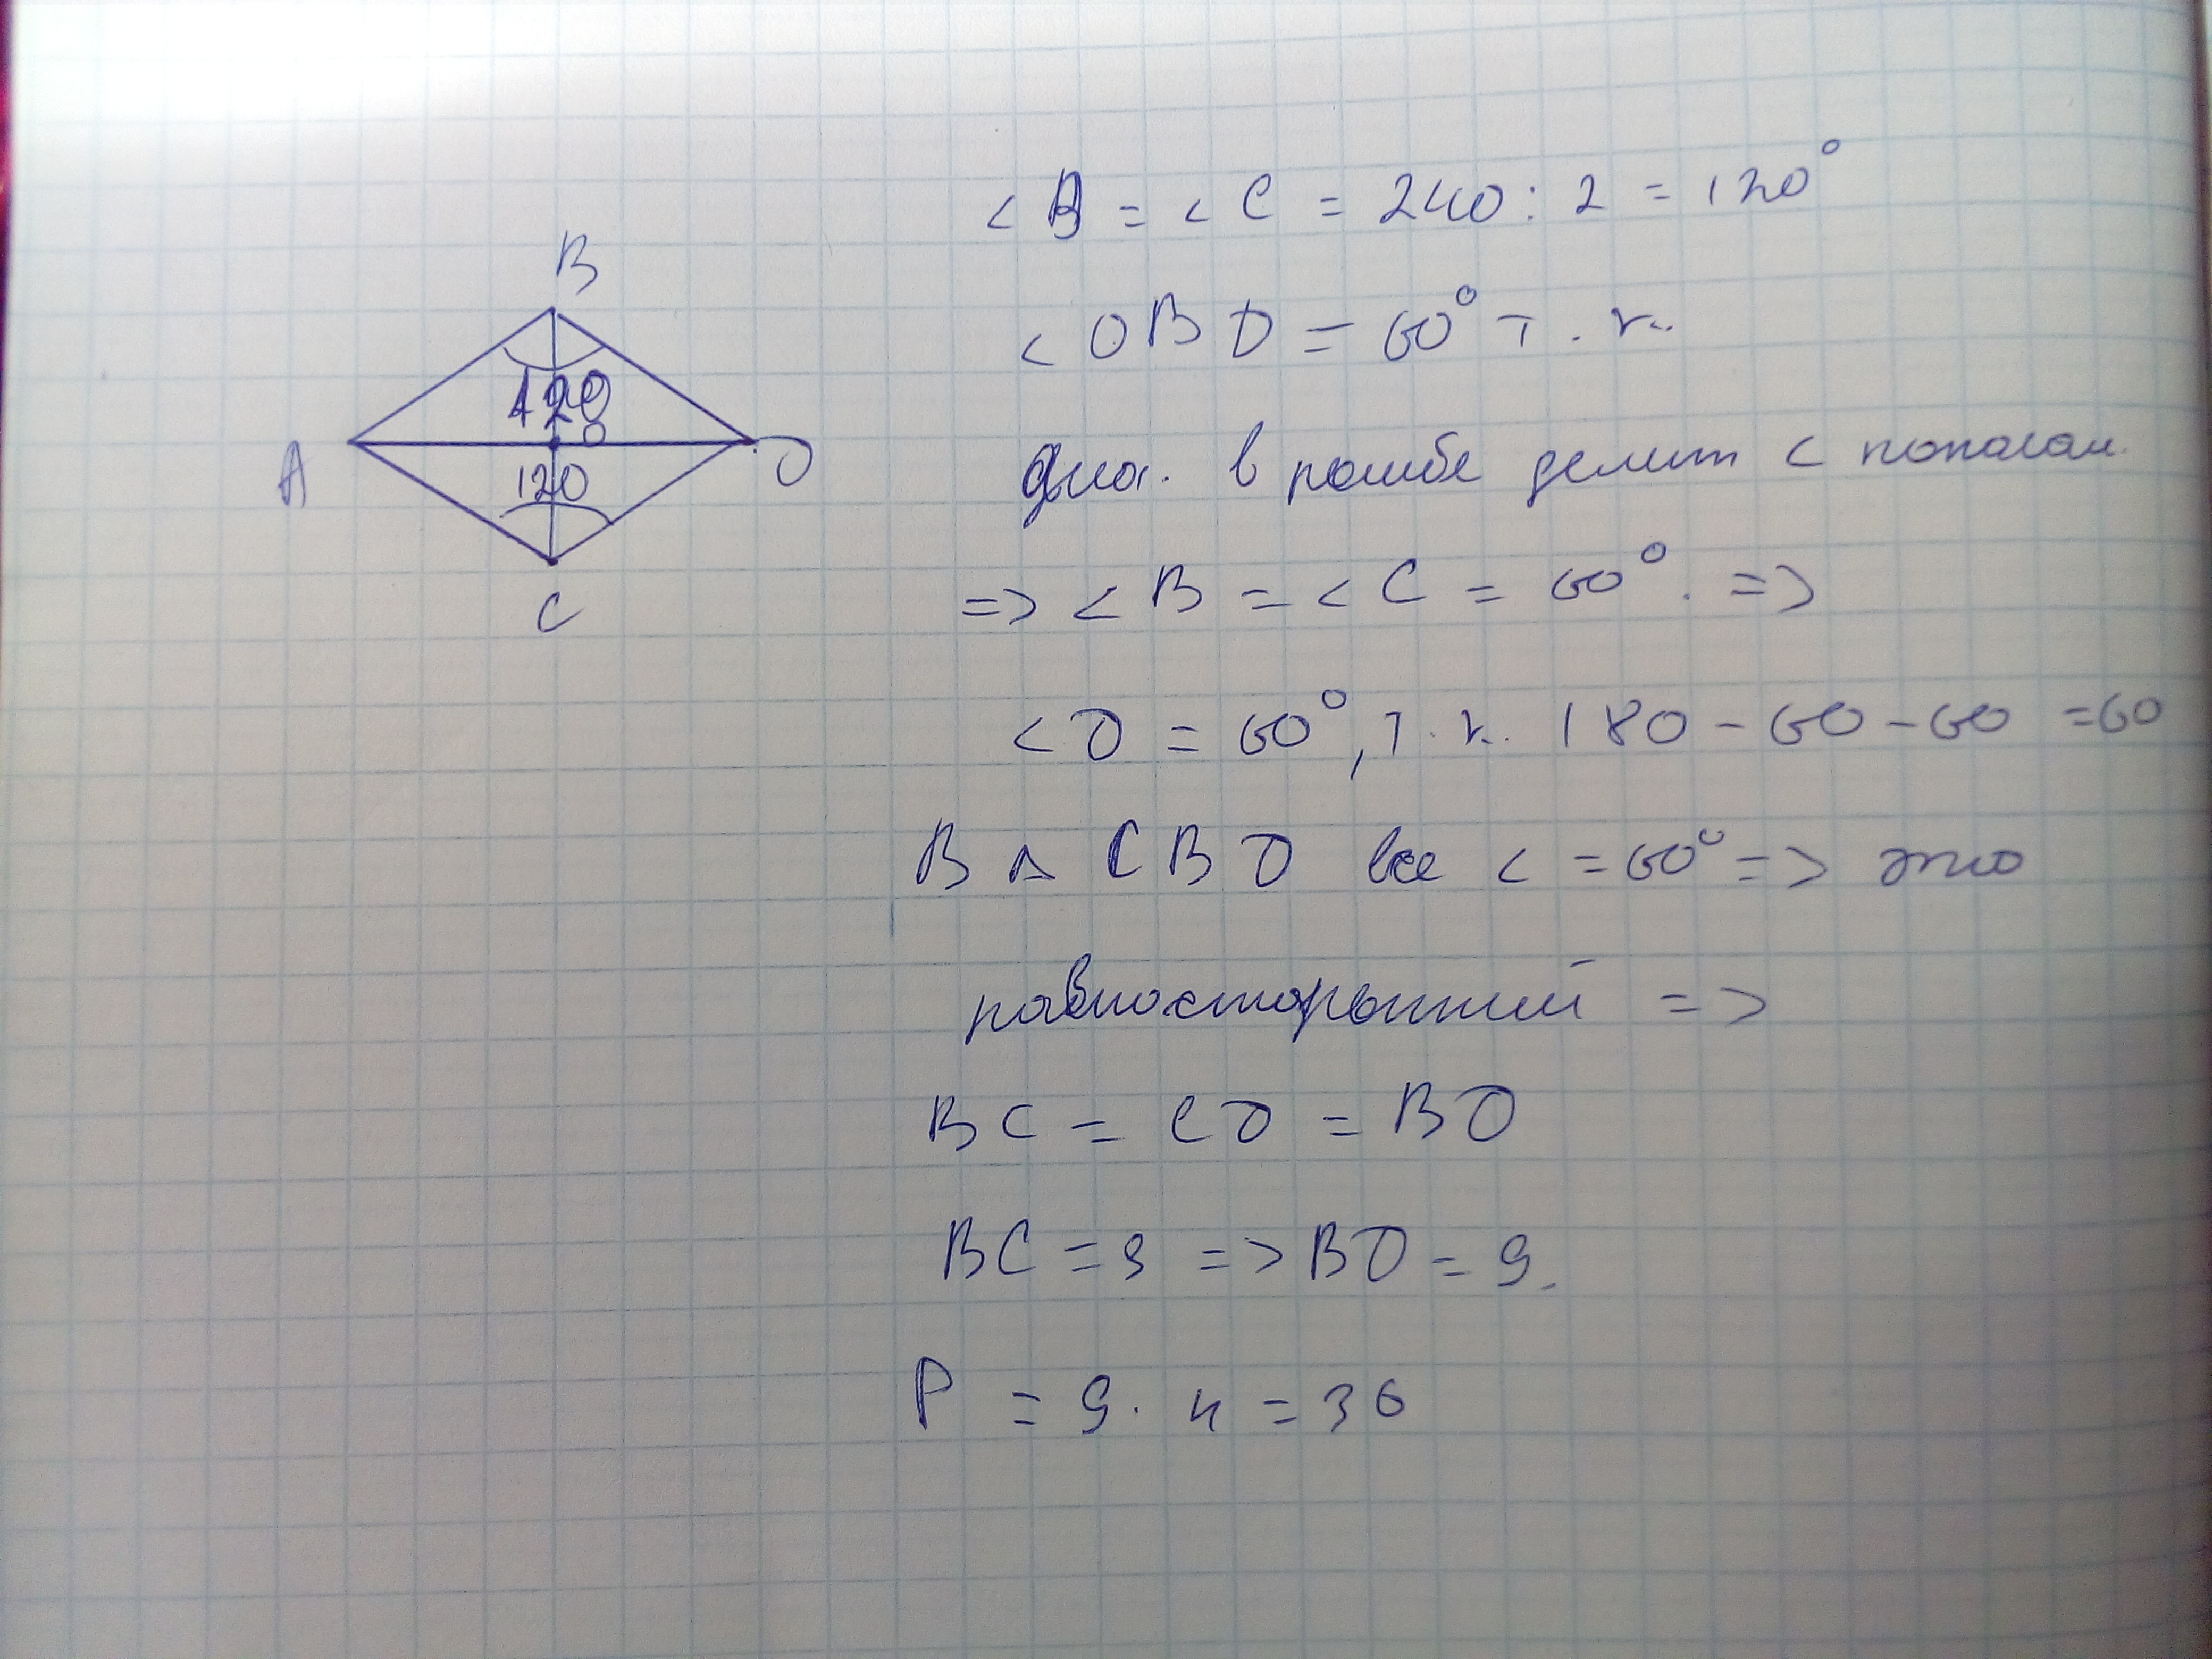 B
120
O
A
D
120
C
<B = <C = 240 : 2 = 120°
<OBD = 60° т.к.
диа. в ромбе делит < пополам.
=> <B = <C = 60°. =>
<D = 60°, т.к. 180 - 60 - 60 = 60
В △ CBD все < = 60° => это
равносторонний =>
BC = CD = BD
BC = 9 => BD = 9.
P = 9 · 4 = 36